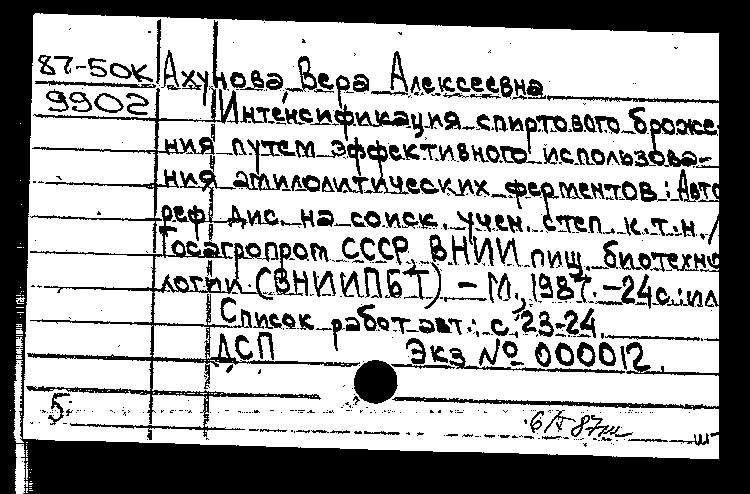 87-50К Ахунова, Вера Алексеевна
9902 Интенсификация спиртового броже-
ния путем эффективного использова-
ния амилолитических ферментов: Авто
реф. дис. на соиск. учен. степ. к.т.н./
Госагропром СССР, ВНИИ пищ. биотехно
логии (ВНИИПБТ) – М., 1987. – 24с.: ил
Список работ авт.: с. 23-24.
ДСП Экз № 000012.
5.